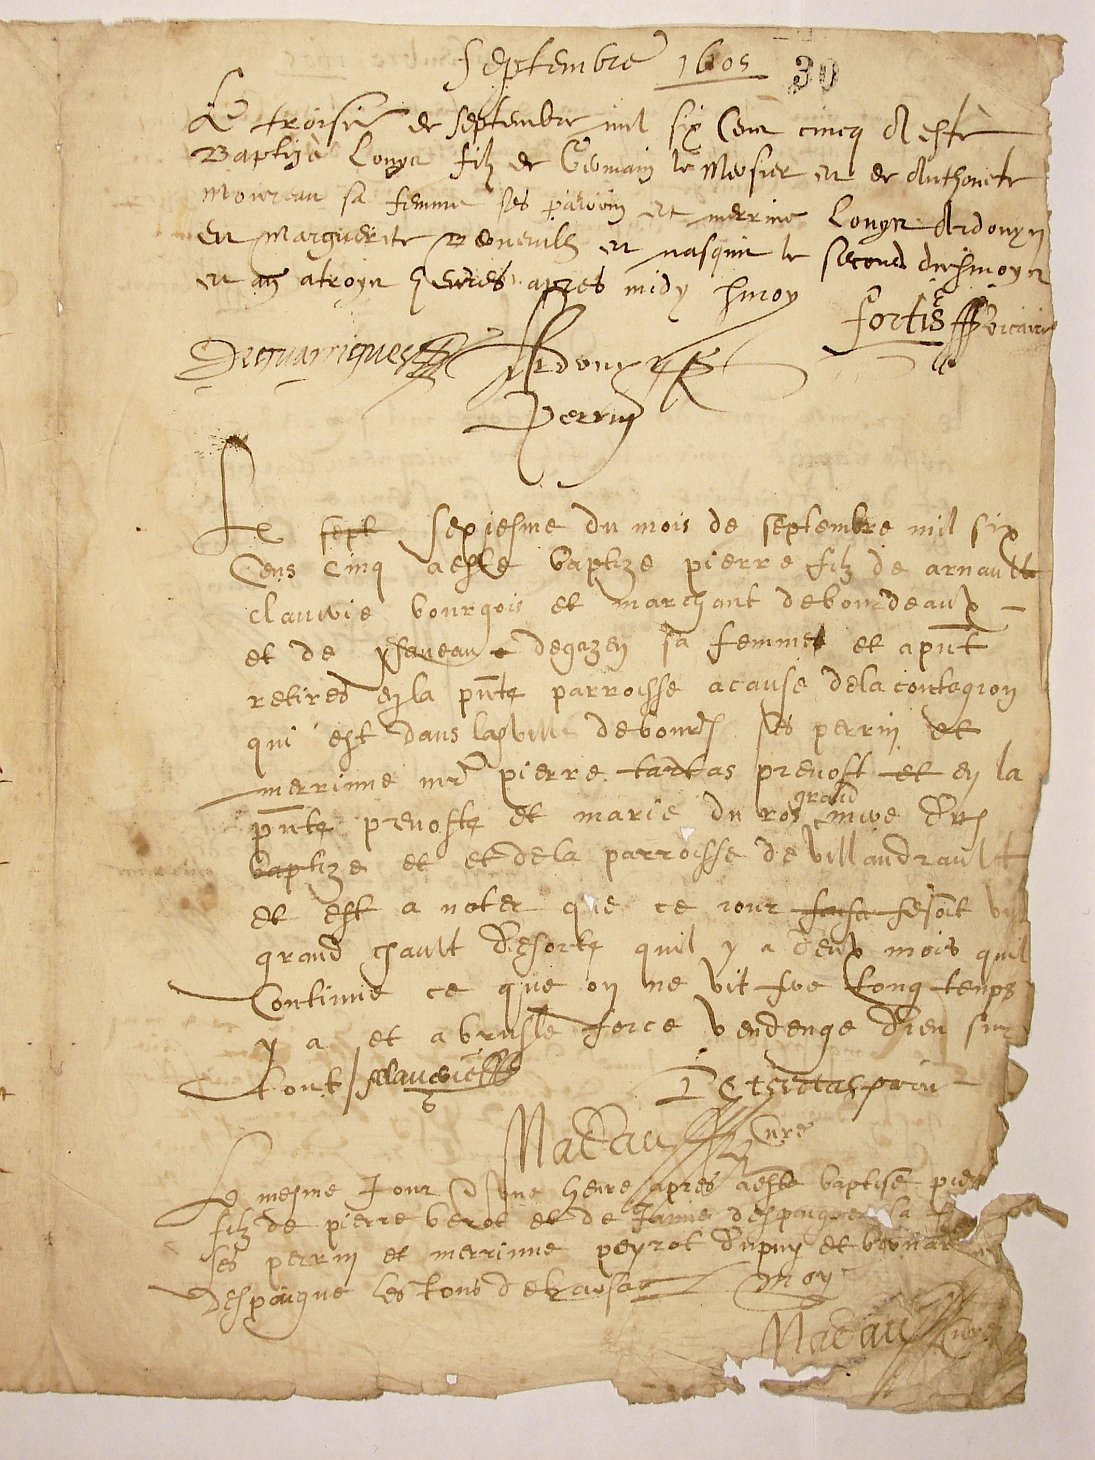 Septembre 1605
30
Le troisie de Septembre mil six Cent cincq A este
Baptize Louys filz de Germain le Mosnier et de Anthonete
Moureau sa femme ses parrin et merrine Louys Ardouyn
et Marguerite et nasquit le second dudict moys
et an a troys heures apres midy
fortis vicaire
Ardouyn
Perrin
Le sept sepiesme du mois de septembre mil six
Cens Cinq aeste baptize pierre filz de arnault
clauvie bourgois et marchant debourdeaux
et de degazen sa femme et apnt
retires en la pnte parroisse acause dela contagion
qui est dans la ville debourd ses perrin et
merrinne mr pierre tartas prevost et en la
pnte prevoste et marie du ros grand mere dud
baptize et et dela parroisse de villandrault
et est a noter que ce iour fesoit un
grand chault desorte quil y a deux mois quil
Continue ce que on ne vit fve long temps
y a et a brusle force vendenge dieu sur
tout clauvie
Detartas prin
Nadau Cure
Le mesme Jour une heure apres aeste baptise pierre
filz de pierre verot et de Jamie despaigne sa
ses perrin et merrinne peyrot dupuy et
despaigne les tous de moy
Nadau Cure